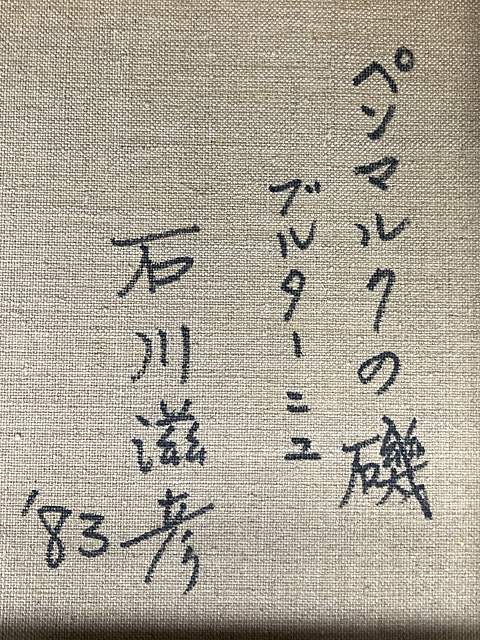 ペンマルクの磯
ブルターニュ
石川滋彦
'83